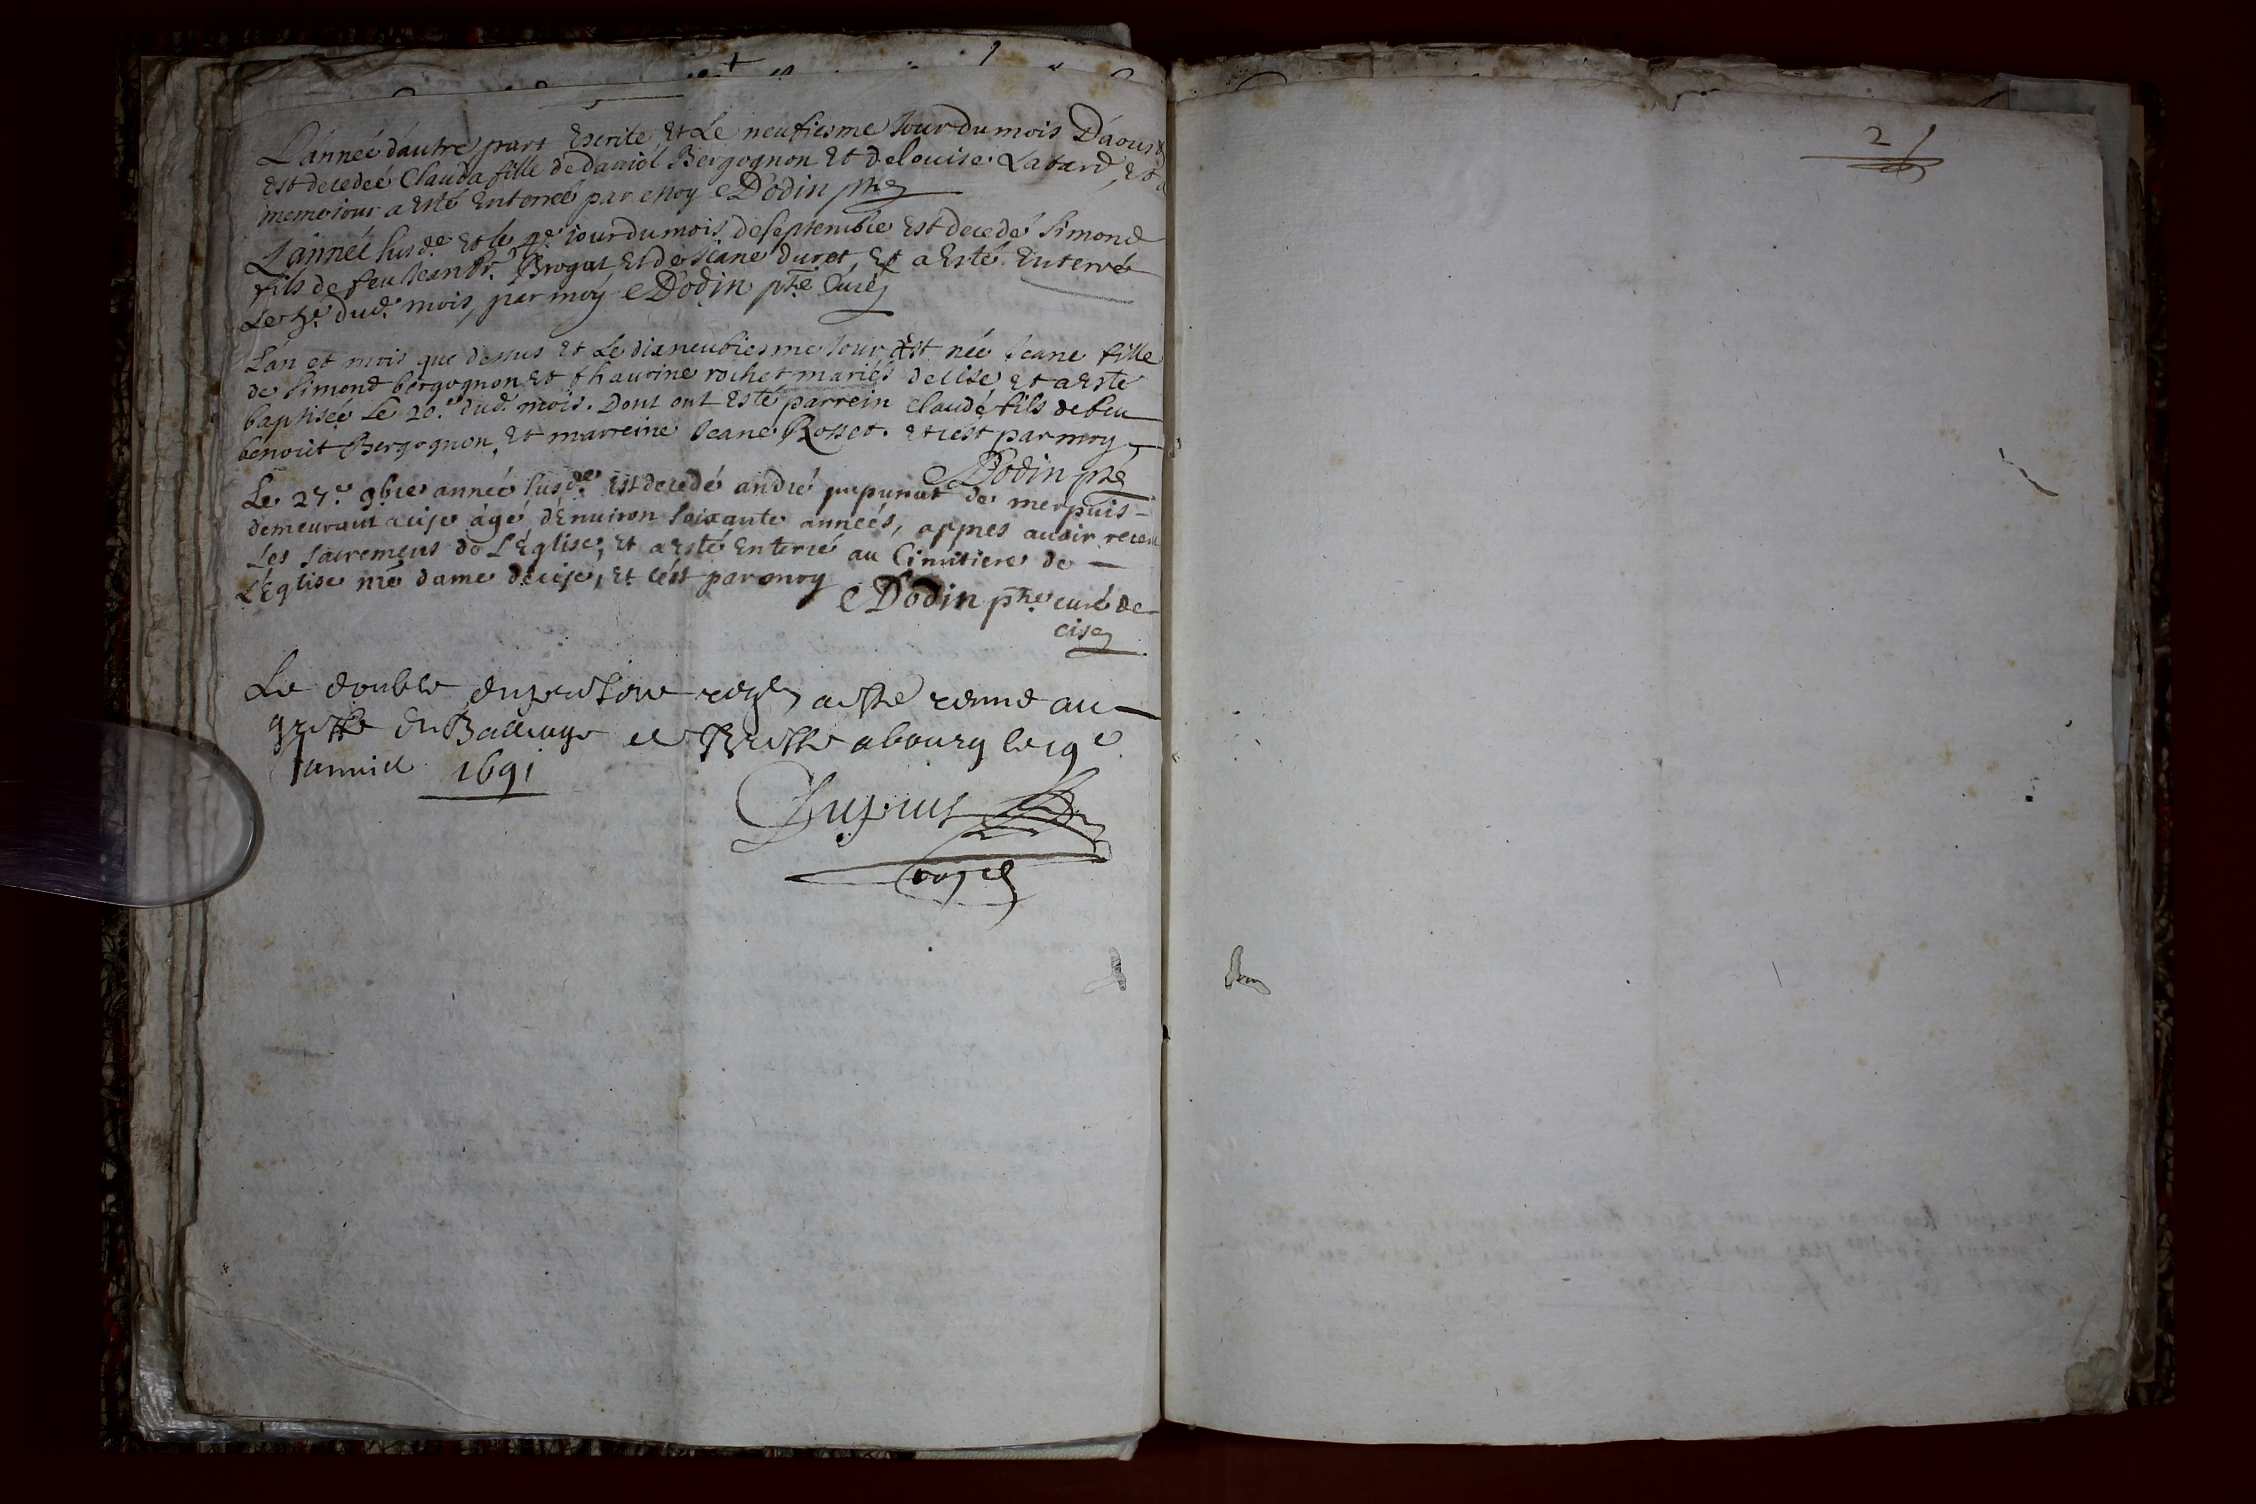 L'année d'autre part Escrite, Et Le neufiesme Jour du mois D'aoust
Est decedeé Clauda fille de daniel Bergognon Et de louise Latard, Et
meme jour a Esté Enterreé par moy Dodin ptre
L'année susde Et le 4e jour du mois de septembre Est decedé Simond
fils de feu Jean Brogat Et de Jeane duret, Et a Esté Enterré
Le 5e dud. mois, par moy Dodin ptre Curé
L'an et mois que dessus Et Le dixneufiesme Jour Est née Jeane fille
de Simond bergognon Et thaurine rochet mariés de cise, Et a Esté
baptisée Le 20e dud. mois. Dont ont Esté parrein Claude fils de feu
benoict Bergognon, Et marreine Jeane Rosset. Et c'est par moy
Dodin ptre
Le 27e 9bre année susde Est decedé andré de merpuis
demeurant a cise âgé d'Enuiron soixante anneés, appres auoir receu
Les sacremens de L'Eglise, Et a Esté Enterré au Cimitiere de
L'Eglise nre dame de cise, Et c'est par moy
Dodin ptre curé de
cise
Le double du present regre a esté remis au
greffe du Balliage de Bresse a bourg le 19e
Januier 1691
21